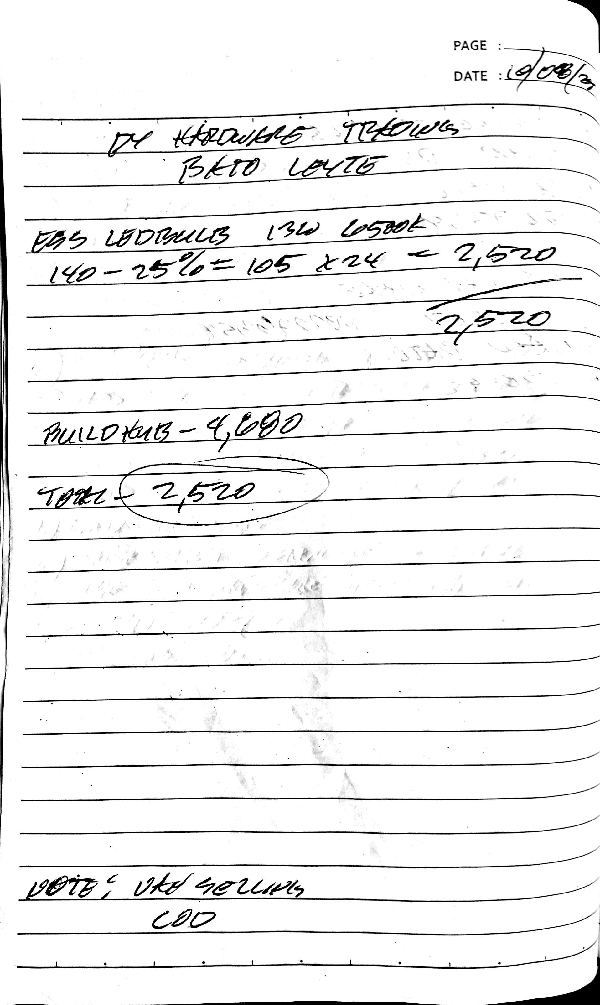 PAGE :
DATE : 10/08/2
DY HARDWARE TRADING
BATO LEYTE
EBS LEDBULB 13W 6500K
140 - 25% = 105 x 24 = 2,520
2,520
BUILDHUB - 4,680
TOTAL - 2,520
NOTE: VAN SELLING
COD